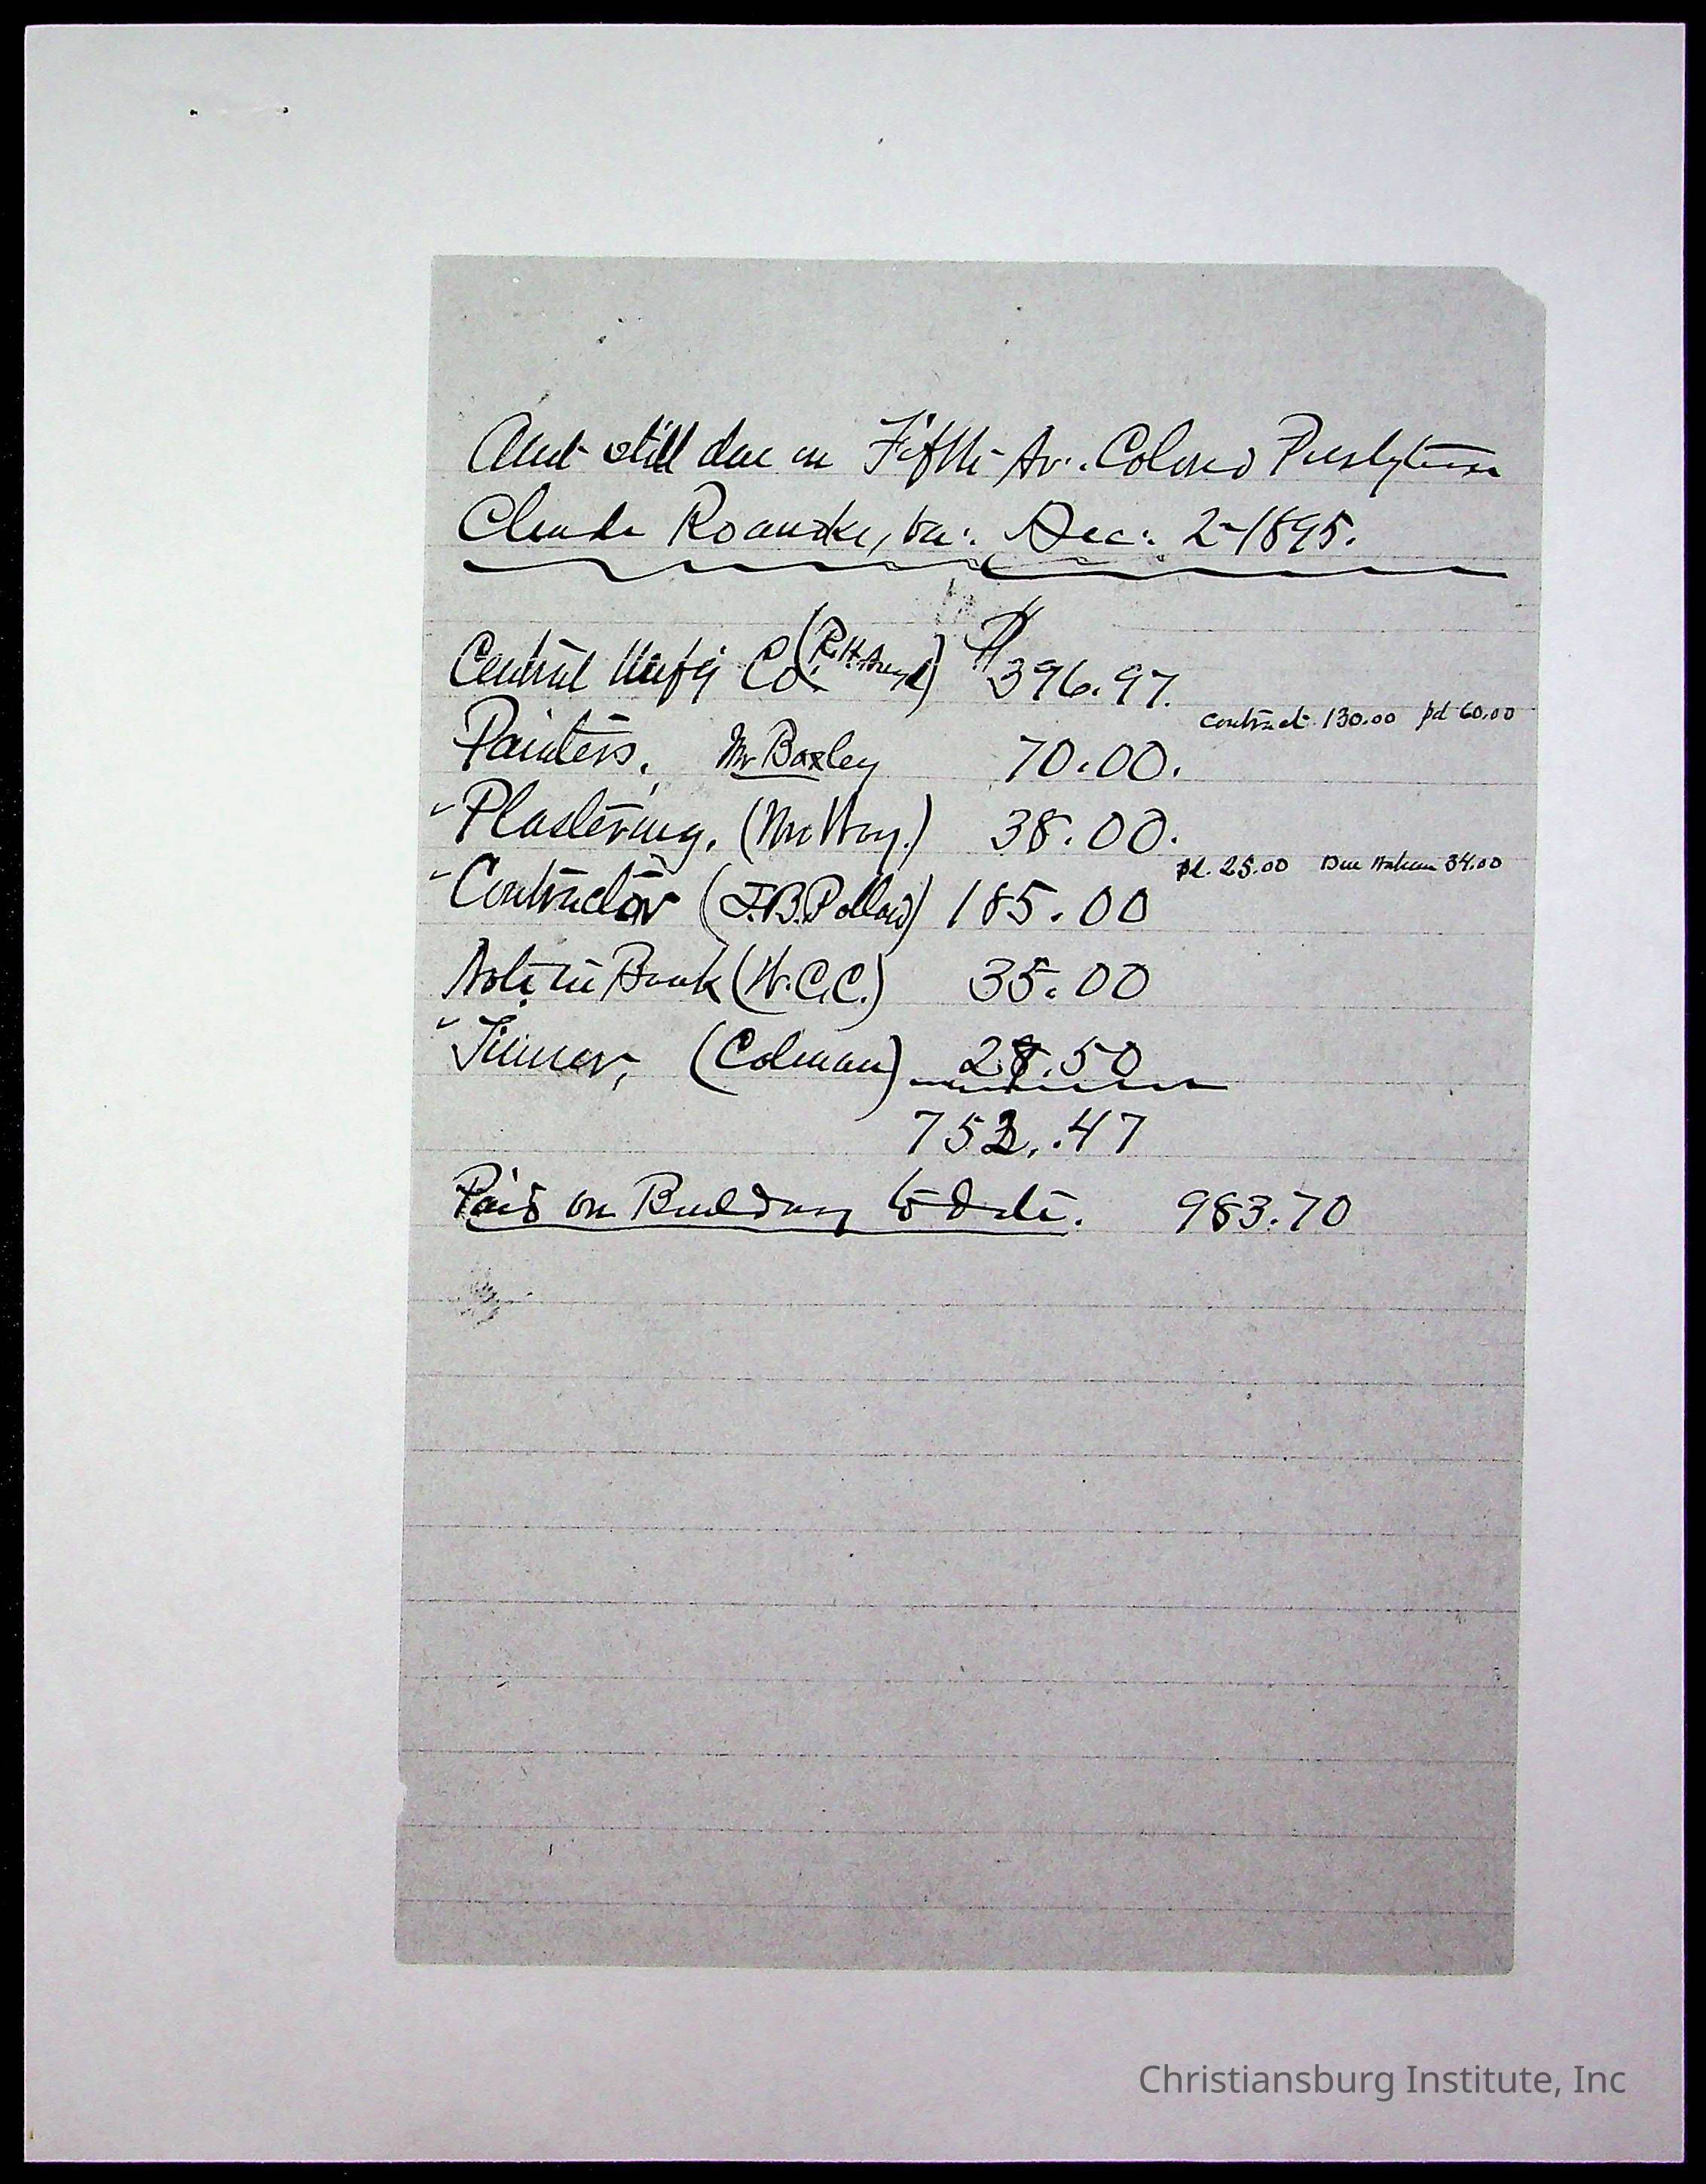 Amt still due on Fifth Av. Colored Presbyterian
Church Roanoke, Va. Dec. 2-1895.
Central Mnf'g Co. (R.H. Angell) $396.97.
contract 130.00 pd 60.00
Painters, Mr Boxley 70.00.
Plastering, (McVoy.) 38.00.
pd. 25.00 Due 34.00
Contractor (J.B. Pollard) 185.00
Note in Bank (W.C.C.) 35.00
Tinner, (Colman) 28.50
753.47
Paid on Building to date. 983.70
Christiansburg Institute, Inc